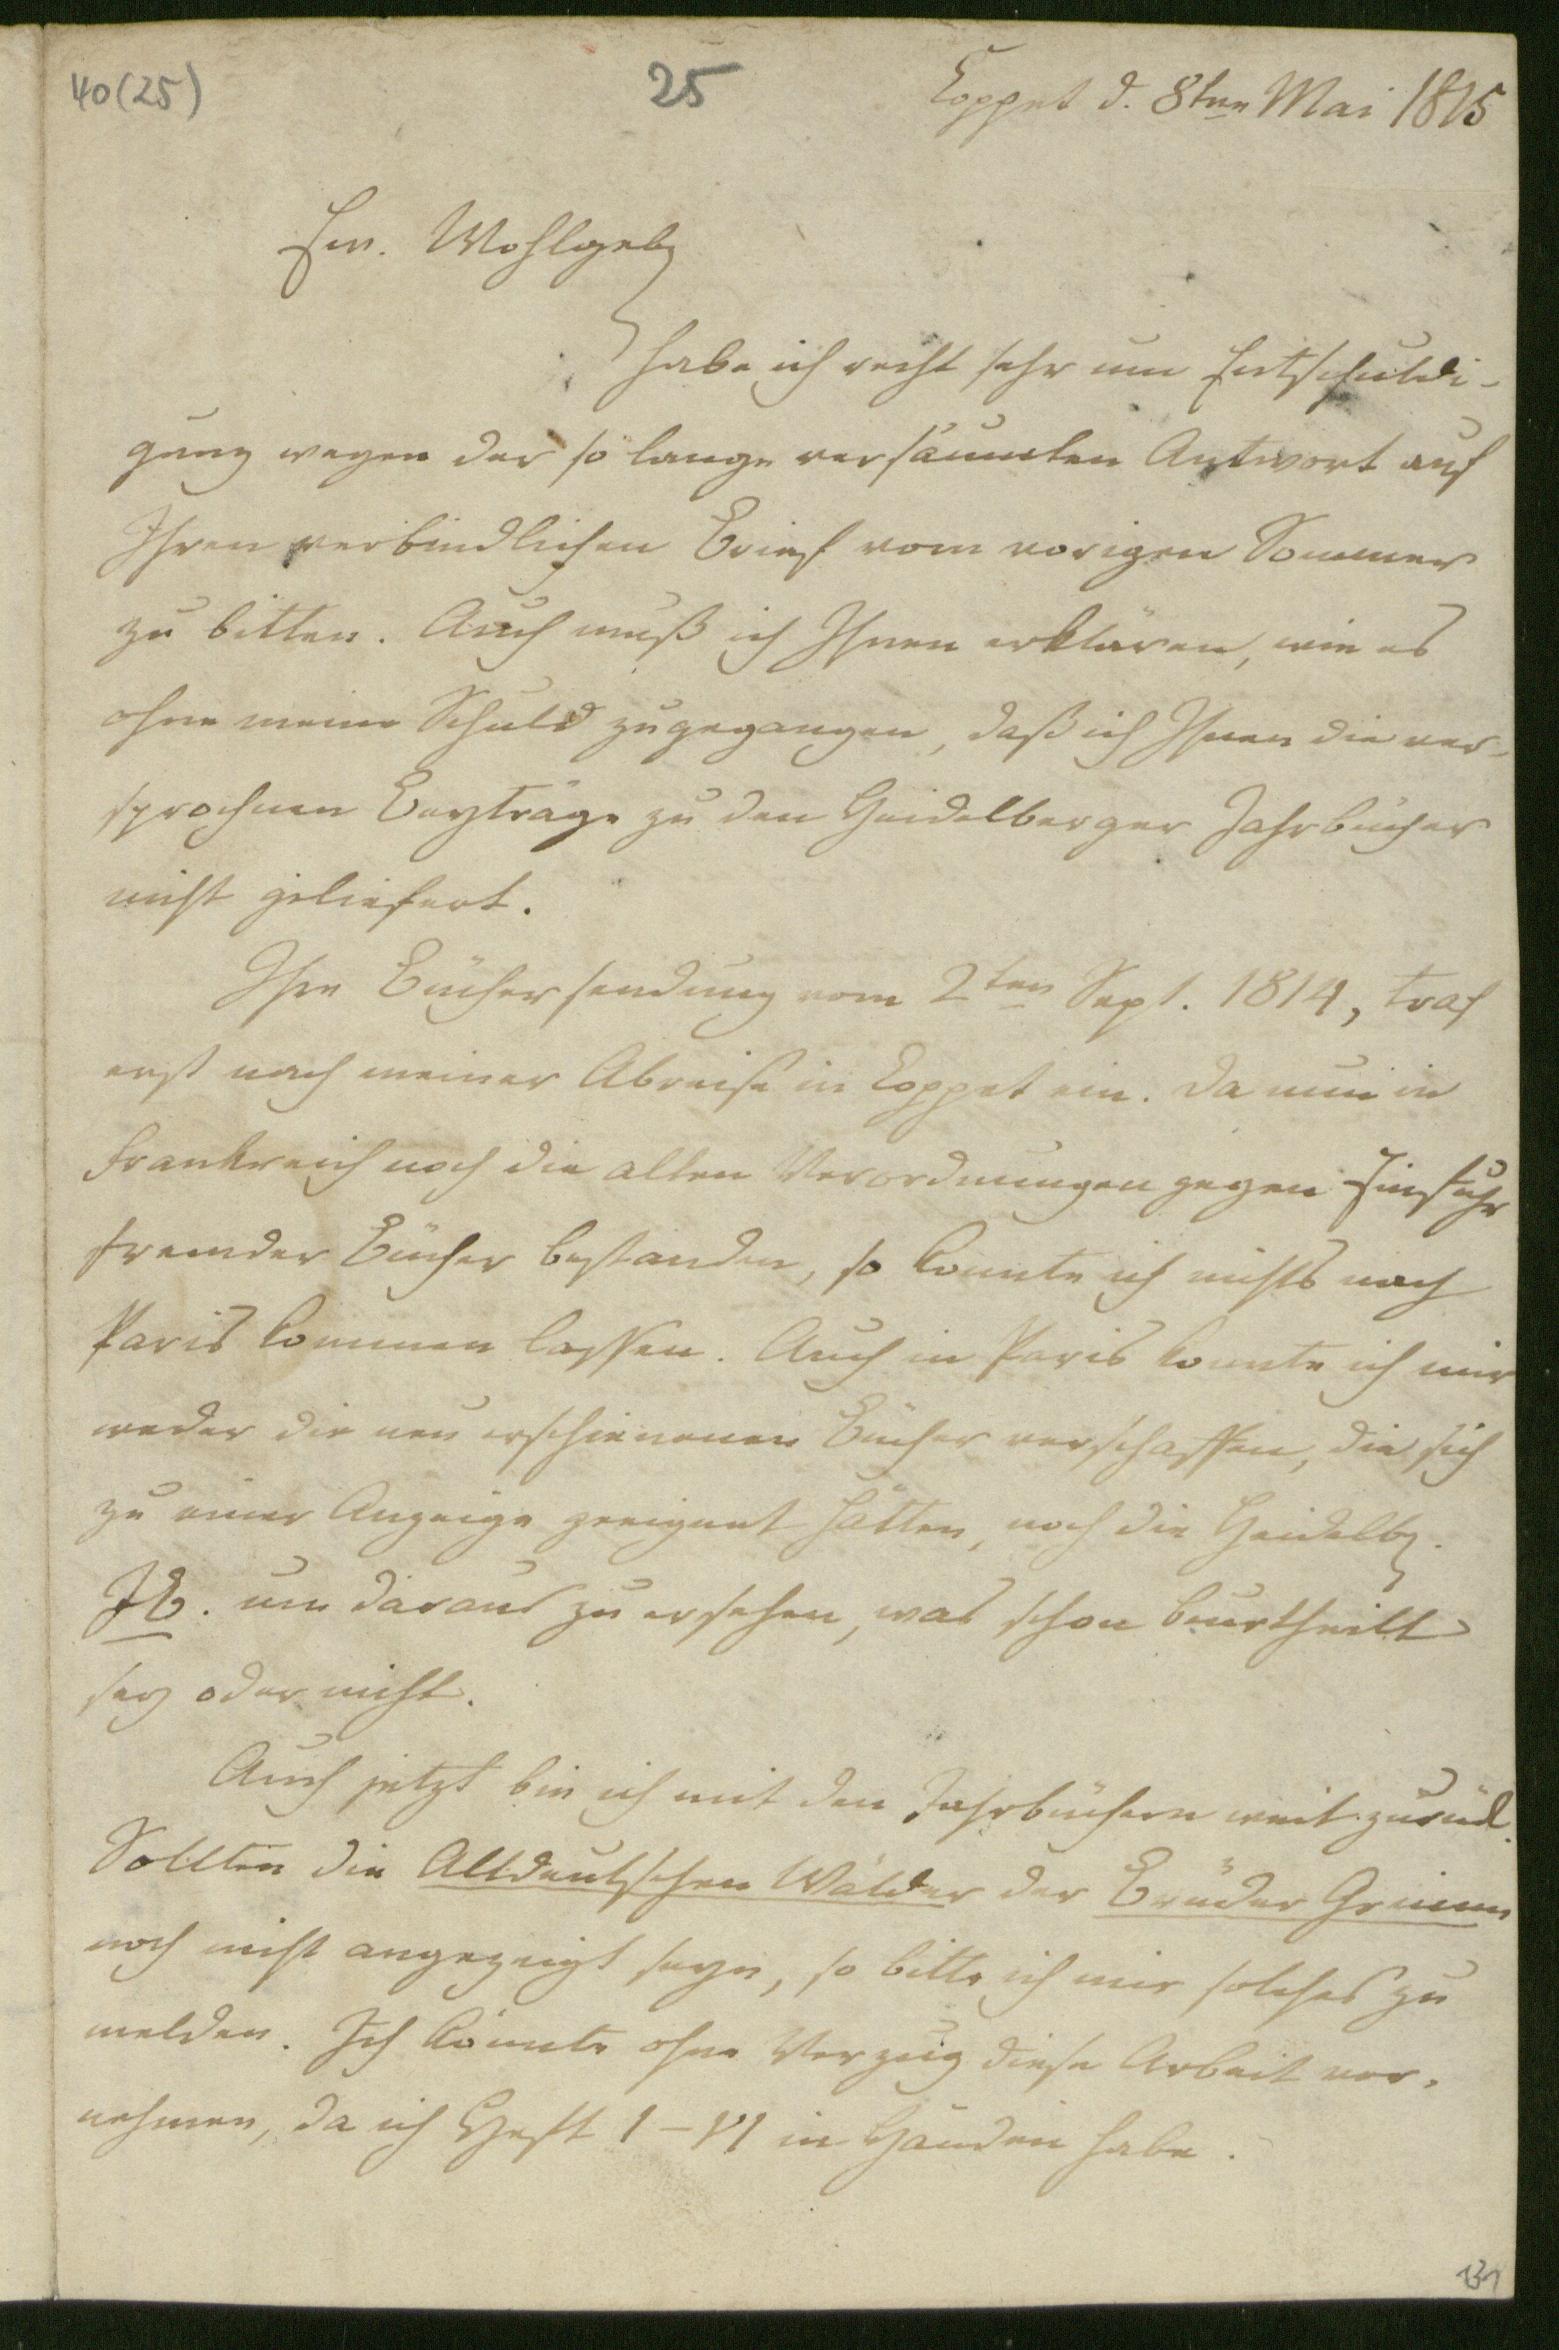 40(25)
25
Coppet d. 8ten Mai 1815
Ew. Wohlgeb
habe ich recht sehr um Entschuldi-
gung wegen der so lange versäumten Antwort auf
Ihren verbindlichen Brief vom vorigen Sommer
zu bitten. Auch muß ich Ihnen erklären, wie es
ohne meine Schuld zugegangen, daß ich Ihnen die ver-
sprochnen Beyträge zu den Heidelberger Jahrbücher
nicht geliefert.
Ihre Büchersendung vom 2ten Sept. 1814, traf
erst nach meiner Abreise in Coppet ein. Da nun in
Frankreich noch die alten Verordnungen gegen Einfuhr
fremder Bücher bestanden, so konnte ich nichts nach
Paris kommen lassen. Auch in Paris konnte ich mir
weder die neu erschienenen Bücher verschaffen, die sich
zu einer Anzeige geeignet hätten, noch die Heidelb.
JB. um daraus zu ersehen, was schon beurtheilt
sey oder nicht.
Auch jetzt bin ich mit den Jahrbüchern weit zurück.
Sollten die Altdeutschen Wälder der Brüder Grimm
noch nicht angezeigt seyn, so bitte ich mir solches zu
melden. Ich könnte ohne Verzug diese Arbeit vor-
nehmen, da ich Heft I-VI in Händen habe.
131